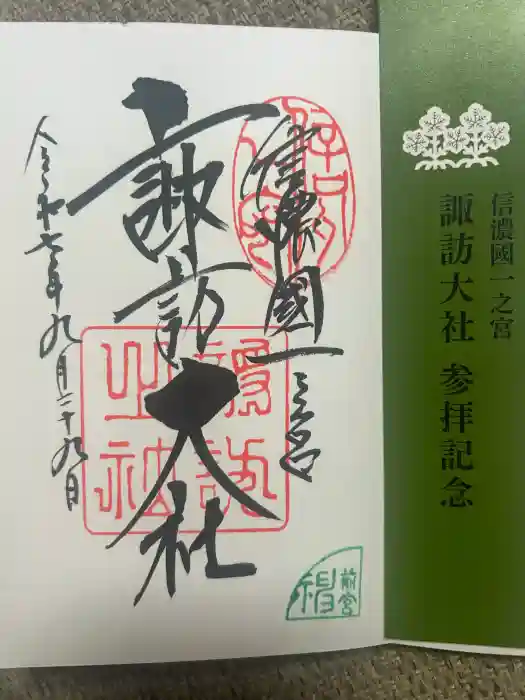 信濃國一之宮
諏訪大社
令和七年九月二十九日
前宮
信濃國一之宮
諏訪大社 参拝記念